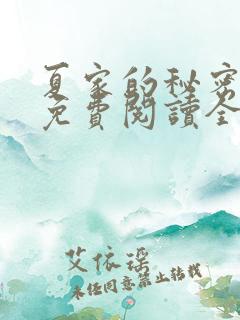 夏家的秘密
免費閱讀全
艾依瑶
未经同意禁止转载